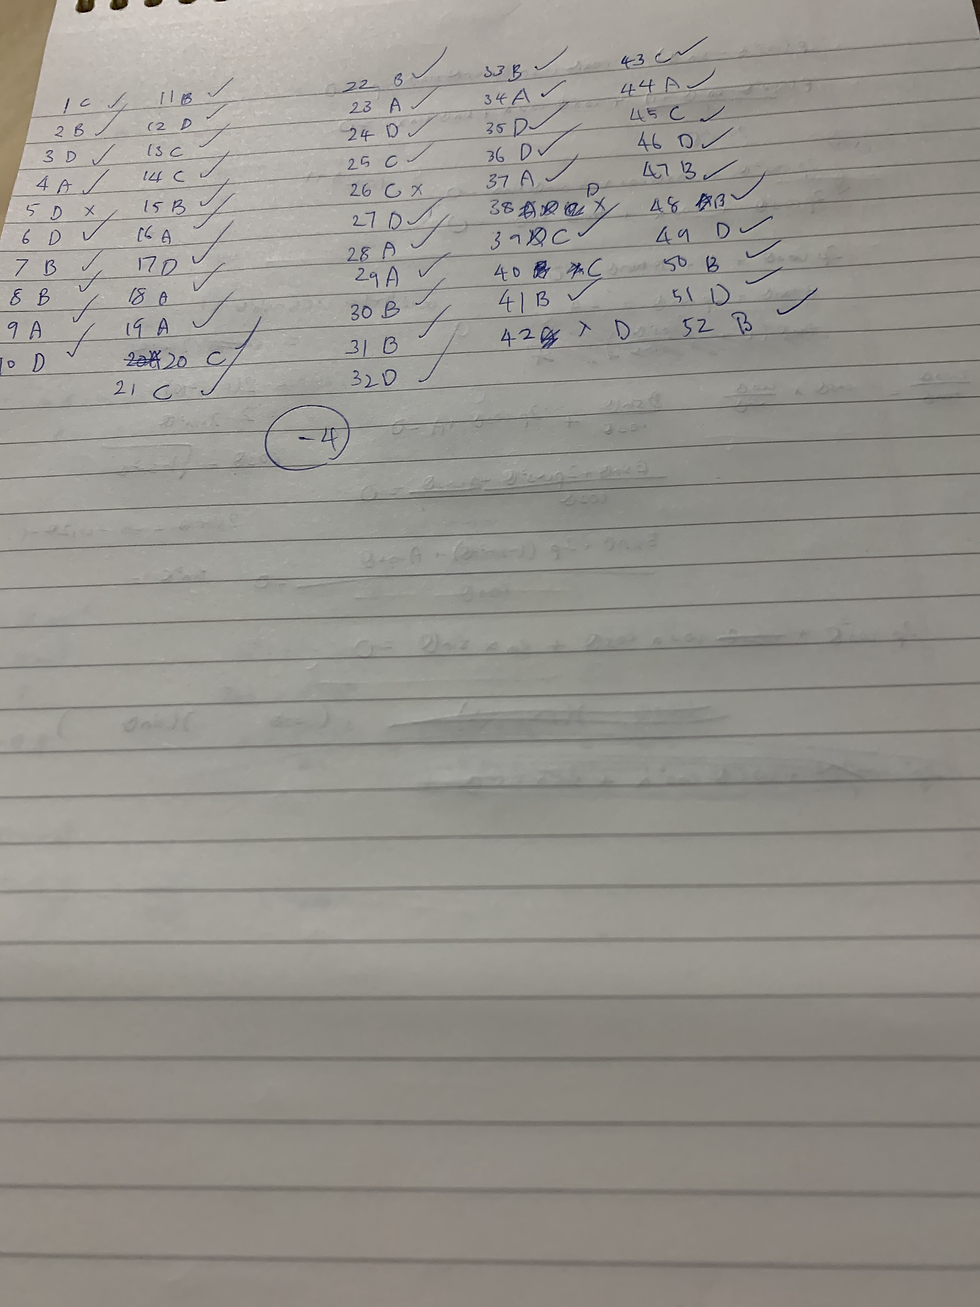 1 C ✓
2 B ✓
3 D ✓
4 A ✓
5 D x
6 D ✓
7 B ✓
8 B ✓
9 A ✓
10 D ✓
11 B ✓
12 D ✓
13 C ✓
14 C ✓
15 B ✓
16 A ✓
17 D ✓
18 A ✓
19 A ✓
20 C
21 C ✓
22 B ✓
23 A ✓
24 D ✓
25 C ✓
26 C x
27 D ✓
28 A ✓
29 A ✓
30 B ✓
31 B ✓
32 D ✓
33 B ✓
34 A ✓
35 D ✓
36 D ✓
37 A ✓
38 D x
39 C ✓
40 x C
41 B ✓
42 x D
43 C ✓
44 A ✓
45 C ✓
46 D ✓
47 B ✓
48 B ✓
49 D ✓
50 B ✓
51 D ✓
52 B ✓
-4